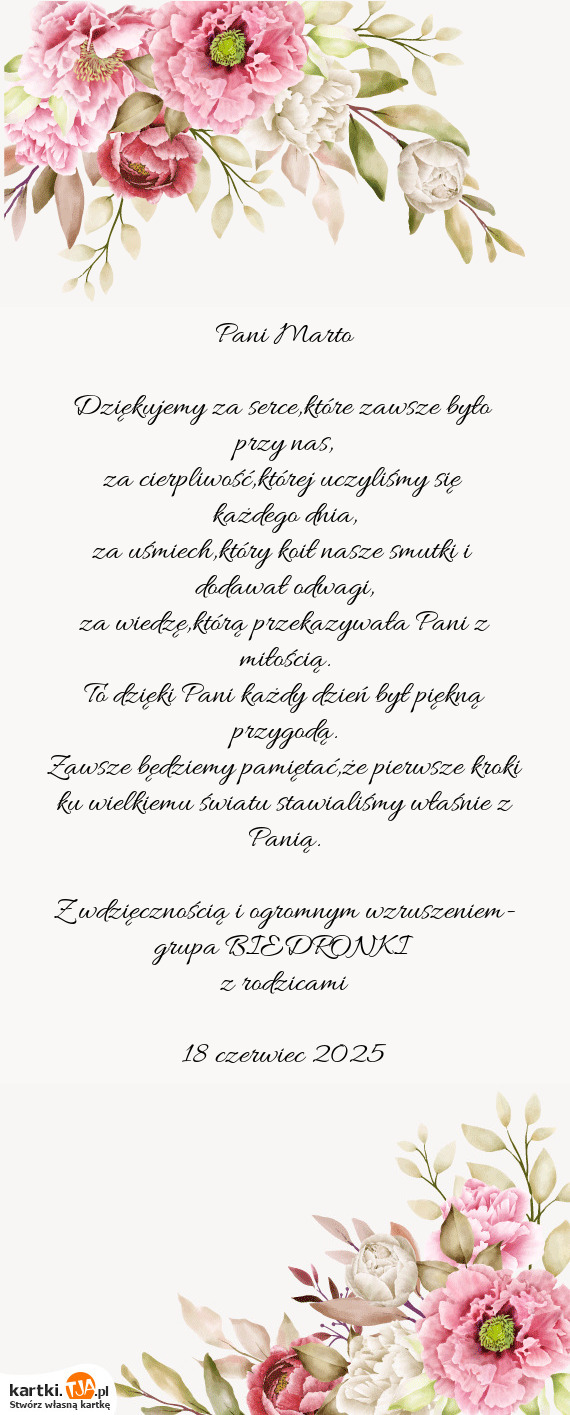 Pani Marto
Dziękujemy za serce,które zawsze było
przy nas,
za cierpliwość,której uczyliśmy się
każdego dnia,
za uśmiech,który koił nasze smutki i
dodawał odwagi,
za wiedzę,którą przekazywała Pani z
miłością.
To dzięki Pani każdy dzień był piękną
przygodą.
Zawsze będziemy pamiętać,że pierwsze kroki
ku wielkiemu światu stawialiśmy właśnie z
Panią.
Z wdzięcznością i ogromnym wzruszeniem-
grupa BIEDRONKI
z rodzicami
18 czerwiec 2025
kartki.TJA.pl
Stwórz własną kartkę